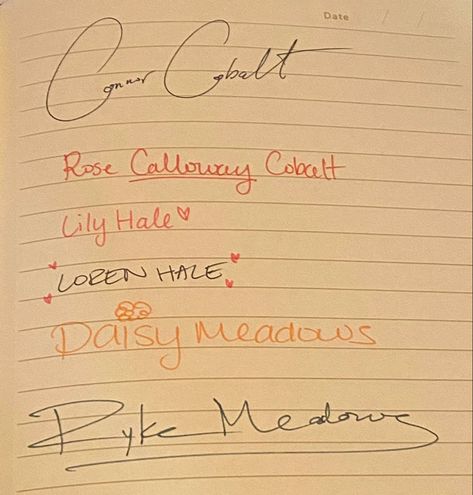 Date / /
Connor Cobalt
Rose Calloway Cobalt
Lily Hale
LOREN HALE
Daisy Meadows
Ryke Meadows